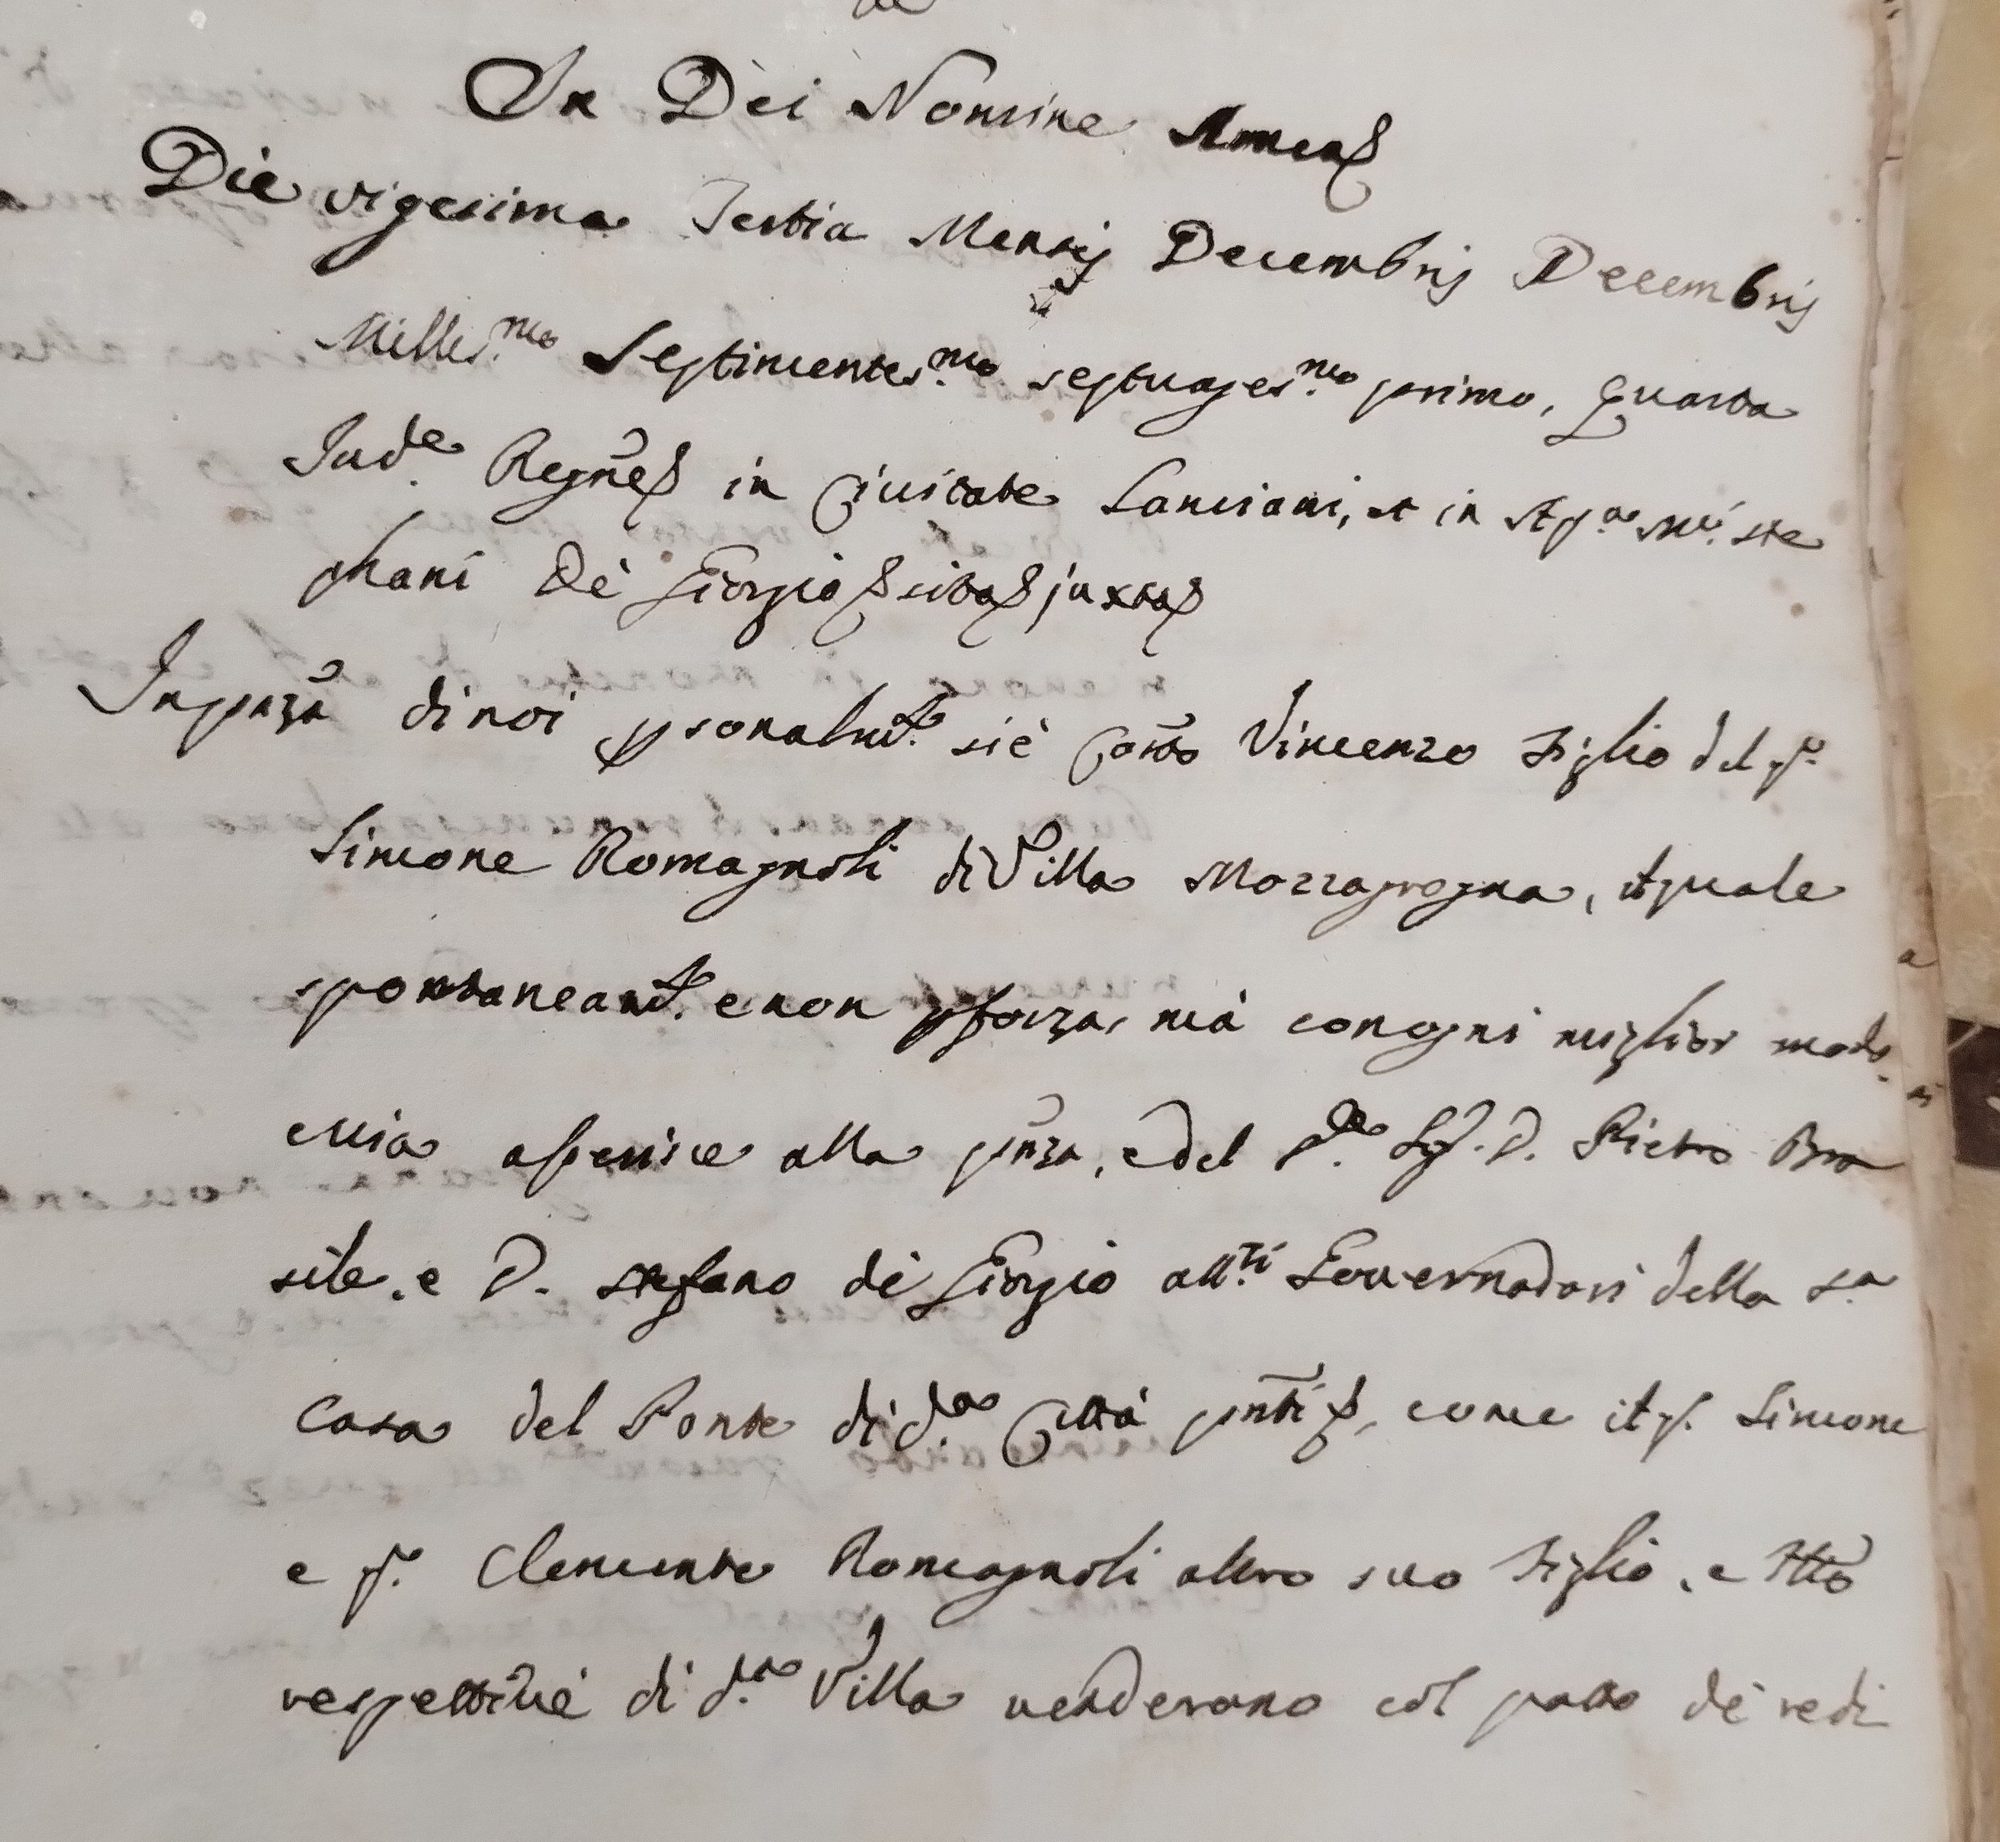 In Dei Nomine Amen
Die vigesima Tertia Mensis Decembris Decembris
Milles.mo Septincentes.mo septuages.mo primo, quarta
Ind.e Regñe in Civitate Lanciani, et in Ap.e M.ci Ste
phani Dè Giorgio sita juxta
In pñza di noi psonalmt.e si è Cõnto Vincenzo Figlio del q.m
Simone Romagnoli di Villa Mozzagrogna, il quale
spontaneamt.e e non p forza, mà con ogni miglior modo
e via asserisce alla pñza, e del D.re Sig.r D. Pietro Bra
sile, e D. Stefano dè Giorgio att.li Governadori della S.a
Casa del Ponte di d.a Città pñti, come il q.m Simone
e q.m Clemente Romagnoli altro suo Figlio, e Frõ
respettivè di d.a Villa venderono col patto dè redi